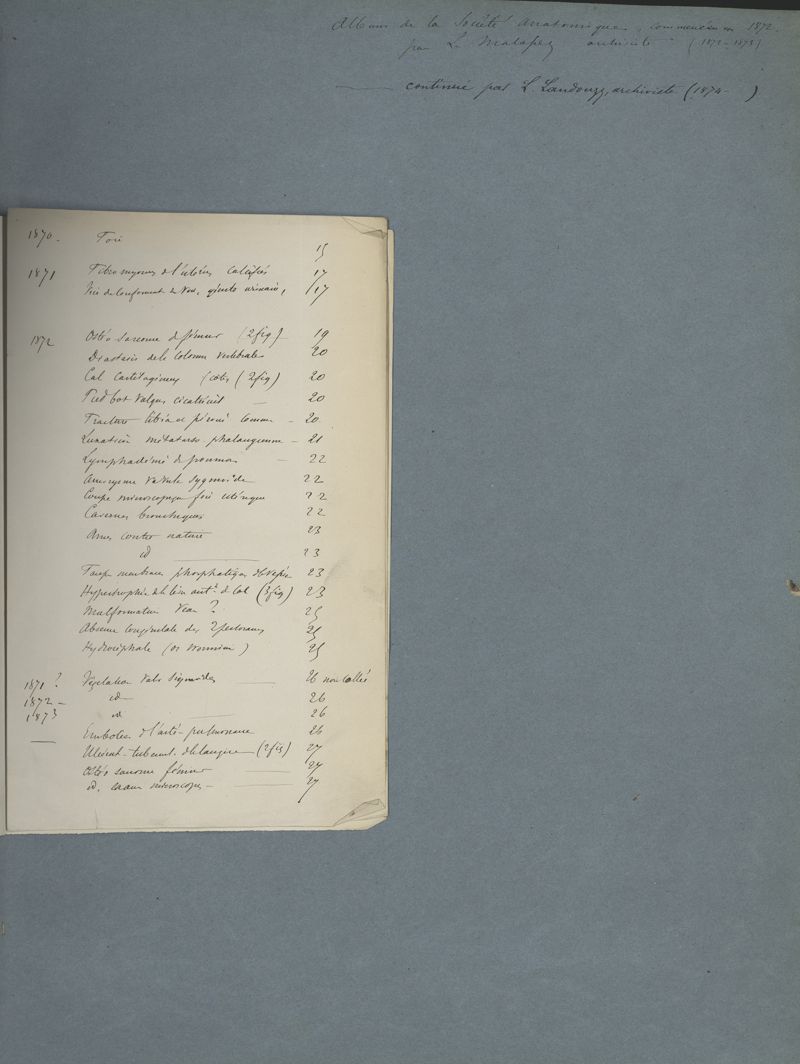 Album de la Société Anatomique, commencé en 1872
par L. Malassez archiviste (1872-1873)
continué par L. Landouzy, archiviste (1874- )
1870. Foie 15
1871 Fibromyomes de l'utérus calcifiés 17
Vice de conformat de génito urinaire, 17
1872 Ostéo sarcome du fémur (2 fig) 19
Diastasis de la colonne vertébrale 20
Cal cartilagineux (côtes (2 fig) 20
Pied bot valgus cicatriciel — 20
Fracture tibia et péroné comm. - 20
Luxation métatarso phalangienne - 21
Lymphadénie du poumon - 22
Anévrysme valvule sygmoïde 22
Coupe microscopique foie ictérique 22
Cavernes bronchiques 22
Anus contre nature 23
id — 23
Fausse membrane phosphatique de vessie 23
Hypertrophie de la lèvre antre du col (3 fig) 23
Malformation ? 25
Absence congénitale des pectoraux 25
Hydrocéphale (os wormien) 25
1871 ? Végétation valv sigmoïdes — 26 non collée
1872 - id - 26
1873 id — 26
— Embolie de l'arté- pulmonaire 26
Ulcérat- tubercul. de la langue - (2 fig) 27
Ostéo sarcome fémur — 27
id. exam microscopiq - — 27